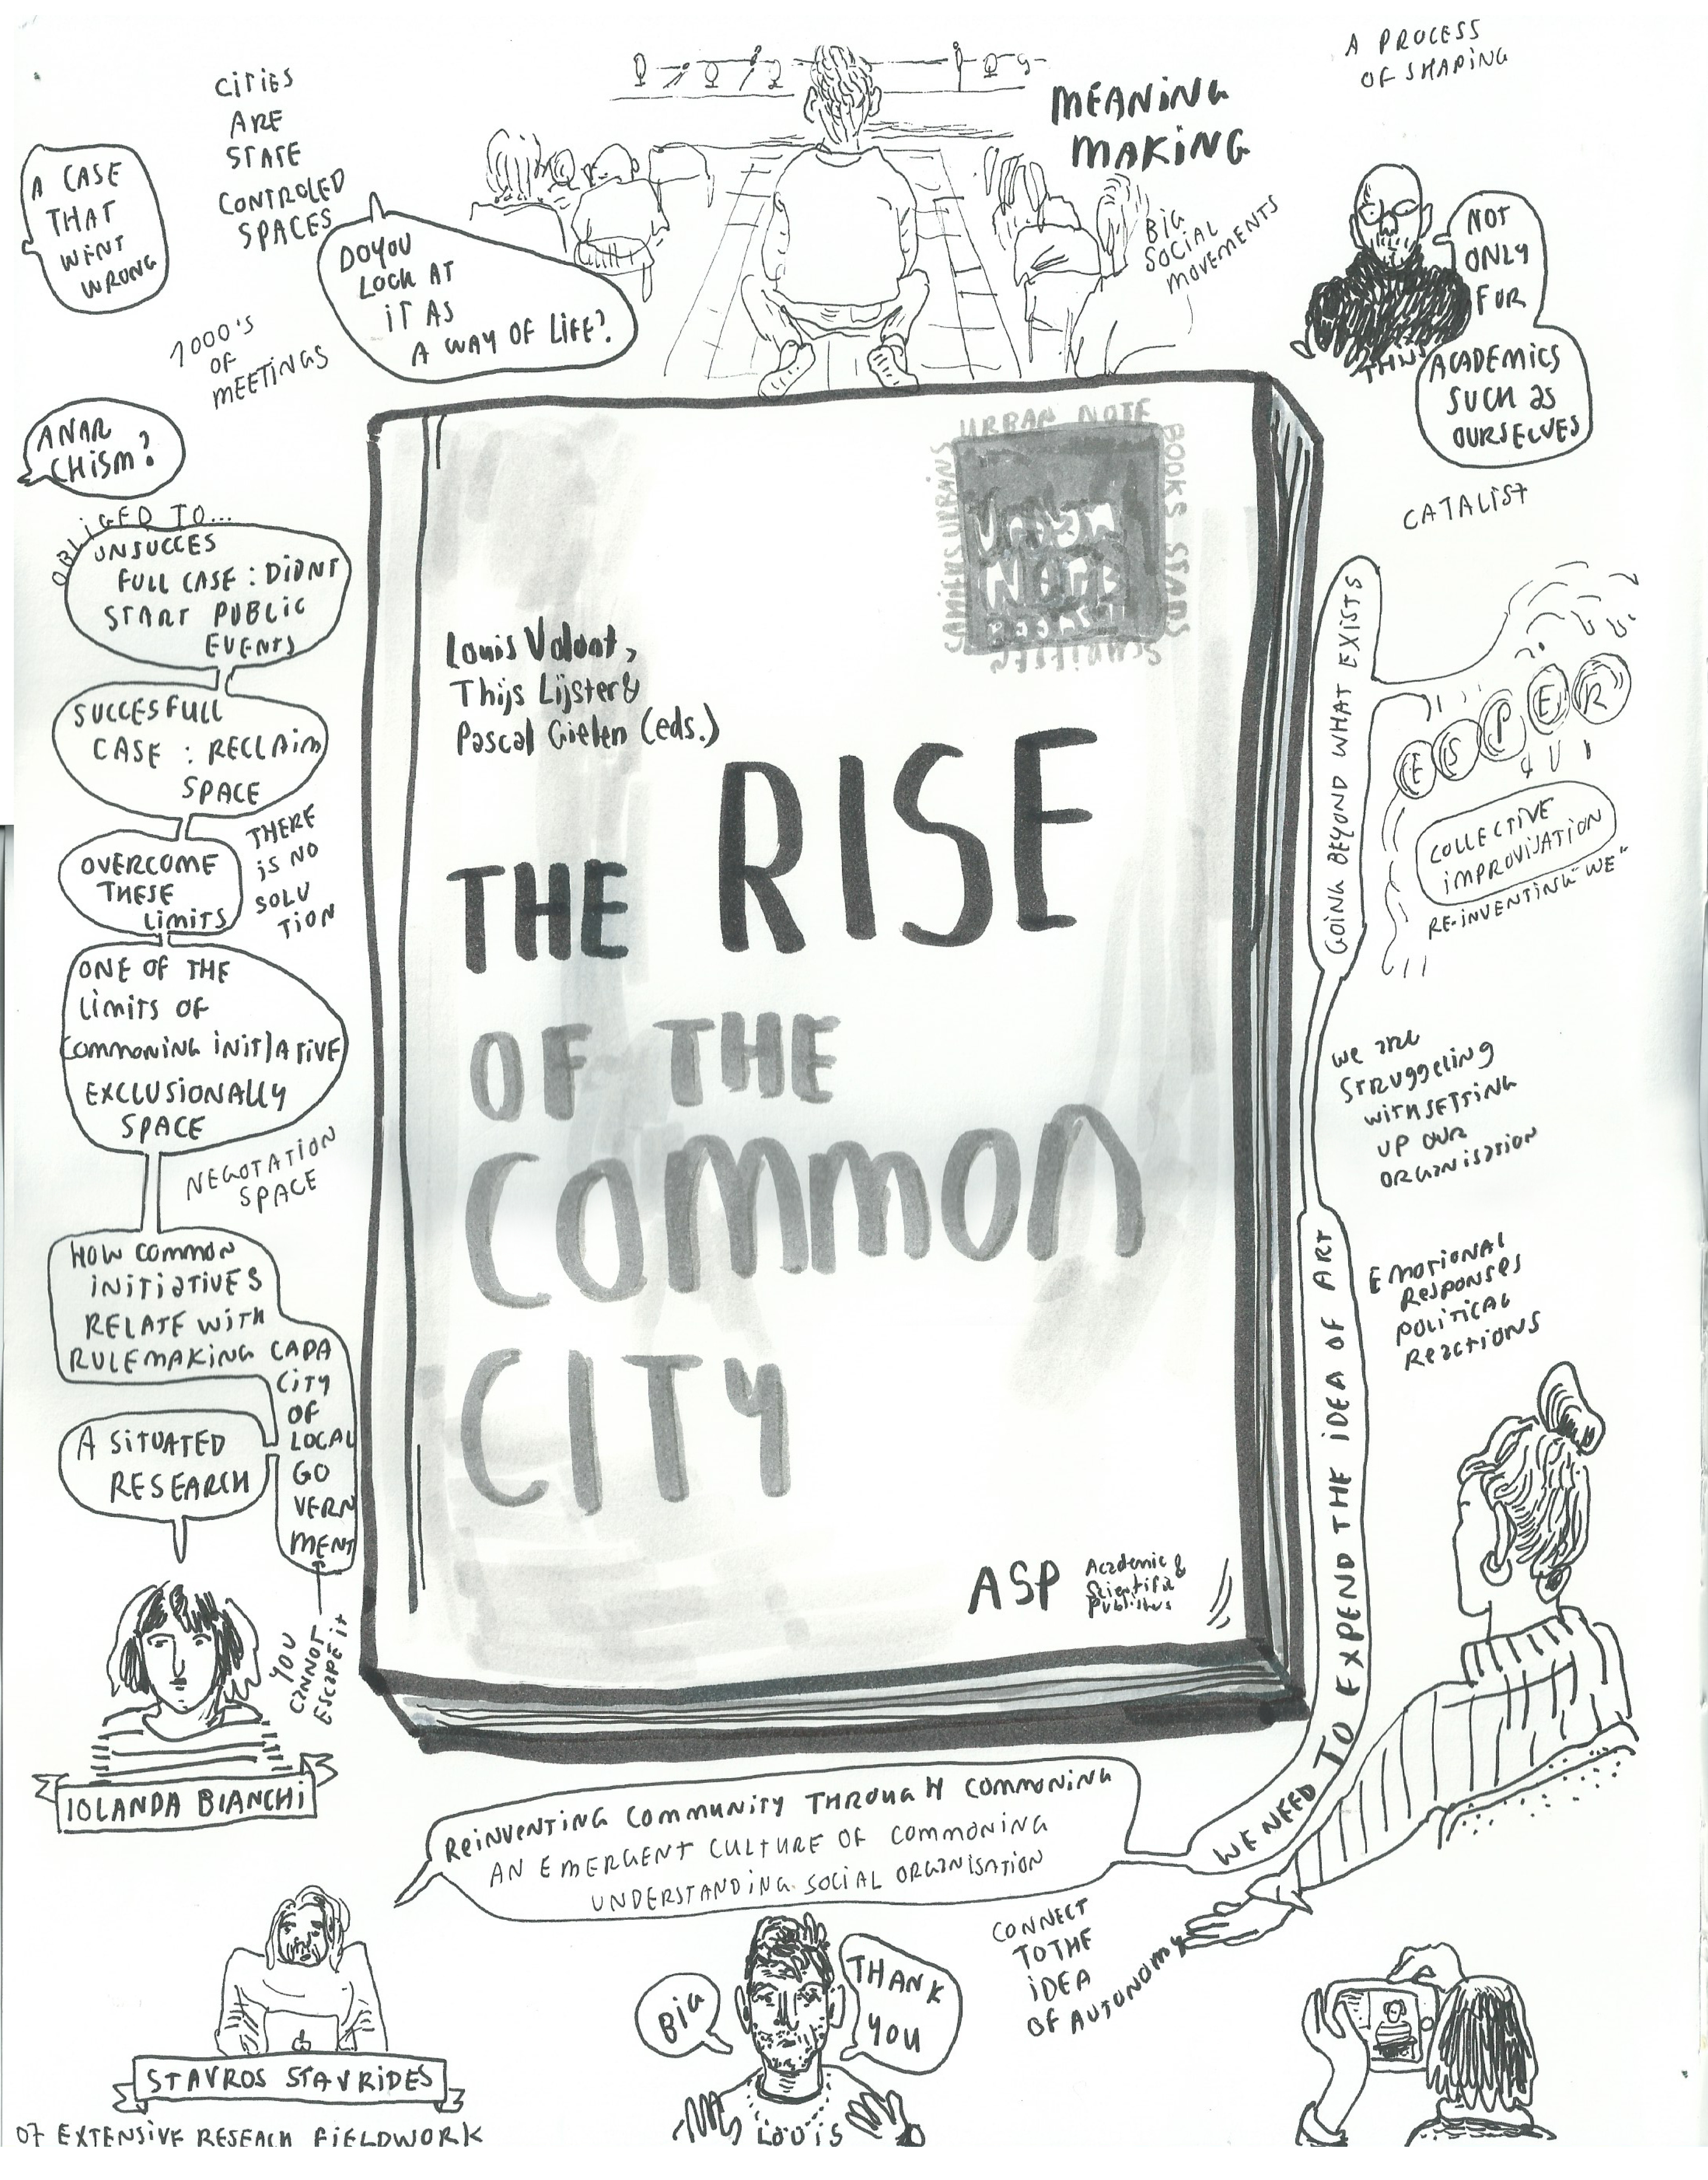 A PROCESS
OF SHAPING
CITIES
ARE
STATE
CONTROLED
SPACES
MEANING
MAKING
A CASE
THAT
WENT
WRONG
DO YOU
LOOK AT
IT AS
A WAY OF LIFE?
BIG
SOCIAL
MOVEMENTS
NOT
ONLY
FOR
ACADEMICS
SUCH as
OURSELVES
THIJS
1000'S
OF
MEETINGS
ANAR
CHISM?
CATALIST
OBLIGED TO...
UNSUCCES
FULL CASE : DIDNT
START PUBLIC
EVENTS
SUCCESFULL
CASE : RECLAIM
SPACE
OVERCOME
THESE
LIMITS
THERE
IS NO
SOLU
TION
ONE OF THE
LIMITS OF
COMMONING INITIATIVE
EXCLUSIONALLY
SPACE
NEGOTATION
SPACE
HOW COMMON
INITIATIVES
RELATE WITH
RULEMAKING CAPA
CITY
OF
LOCAL
GO
VERN
MENT
A SITUATED
RESEARCH
YOU
CANNOT
ESCAPE it
IOLANDA BIANCHI
URBAN NOTE
BOOKS STADS
SCHRIFTEN
CAHIERS URBAINS
URBAN
NOTE
BOOKS
Louis Volont,
Thijs Lijster &
Pascal Gielen (eds.)
THE RISE
OF THE
COMMON
CITY
ASP
Academic &
Scientific
Publishers
GOING BEYOND WHAT EXISTS
ESPER
COLLECTIVE
IMPROVISATION
RE-INVENTING "WE"
we are
struggeling
with SETTING
UP OUR
ORGANISATION
EMOTIONAL
Responses
POLITICAL
Reactions
WE NEED TO EXPEND THE IDEA OF ART
REINVENTING COMMUNITY THROUGH COMMONING
AN EMERGENT CULTURE OF COMMONING
UNDERSTANDING SOCIAL ORGANISATION
CONNECT
TO THE
IDEA
OF AUTONOMY
STAVROS STAVRIDES
07 EXTENSIVE RESEACH FIELDWORK
BIG
THANK
YOU
LOUIS